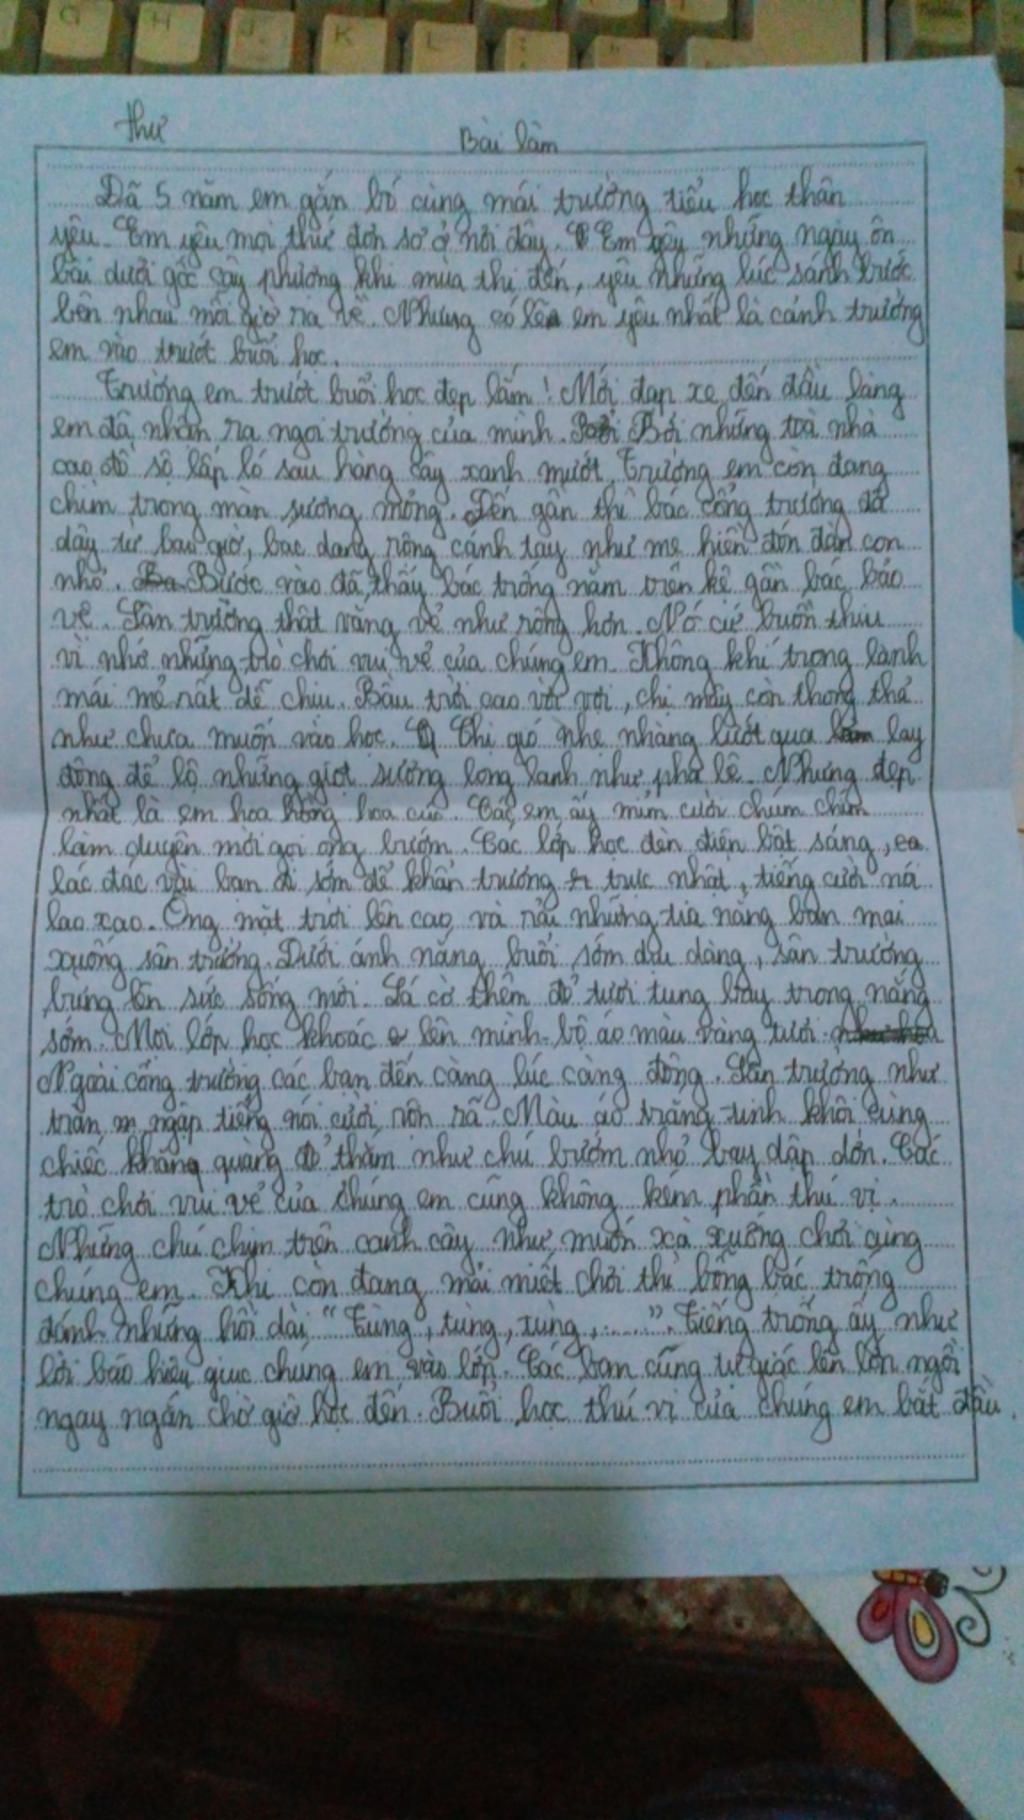 G H J K L
thư
Bài làm
Đã 5 năm em gắn bó cùng mái trường tiểu học thân
yêu. Em yêu mọi thứ đơn sơ ở nơi đây. Em yêu những ngày ôn
bài dưới gốc cây phượng khi mùa thi đến, yêu những lúc sánh bước
bên nhau mỗi giờ ra về. Nhưng có lẽ em yêu nhất là cảnh trường
em vào trướt buổi học.
Trường em trướt buổi học đẹp lắm! Mới đạp xe đến đầu làng
em đã nhận ra ngơi trường của mình. Bởi những toà nhà
cao đồ sộ lấp ló sau hàng cây xanh mướt. Trường em còn đang
chìm trong màn sương mỏng. Đến gần thì bác cổng trường đã
dậy từ bao giờ, bác đang rộng cánh tay như mẹ hiền đón đàn con
nhỏ. Bước vào đã thấy bác trống nằm trên kệ gần bác bảo
vệ. Sân trường thật vắng vẻ như rộng hơn. Nó cứ buồn thiu
vì nhớ những trò chơi vui vẻ của chúng em. Không khí trong lành
mái mẻ rất dễ chịu. Bầu trời cao vời vợi, chị mây còn thong thả
như chưa muốn vào học. Chị gió nhẹ nhàng lướt qua lay
động để lộ những giọt sương long lanh như pha lê. Nhưng đẹp
nhất là em hoa hồng hoa cúc. Các em ấy mỉm cười chúm chím
làm duyên mời gọi ong bướm. Các lớp học đèn điện bật sáng,
lác đác vài bạn đi sớm để khẩn trương trực nhật, tiếng cười nói
lao xao. Ông mặt trời lên cao và rải những tia nắng ban mai
xuống sân trường. Dưới ánh nắng buổi sớm dịu dàng, sân trường
bừng lên sức sống mới. Lá cờ thêm đỏ tươi tung bay trong nắng
sớm. Mọi lớp học khoác lên mình bộ áo màu vàng tươi.
Ngoài cổng trường các bạn đến càng lúc càng đông. Sân trường như
tràn ngập tiếng nói cười rôn rã. Màu áo trắng tinh khôi cùng
chiếc khăng quàng đỏ thắm như chú bướm nhỏ bay dập dờn. Các
trò chơi vui vẻ của chúng em cũng không kém phần thú vị.
Những chú chim trên cành cây như muốn xà xuống chơi cùng
chúng em. Khi còn đang mải miết chơi thì bỗng bác trống
đánh những hồi dài "Tùng, tùng, tùng,......". Tiếng trống ấy như
lời báo hiệu giục chúng em vào lớp. Các bạn cũng tự giác lên lớp ngồi
ngay ngắn chờ giờ học đến. Buổi học thú vị của chúng em bắt đầu.